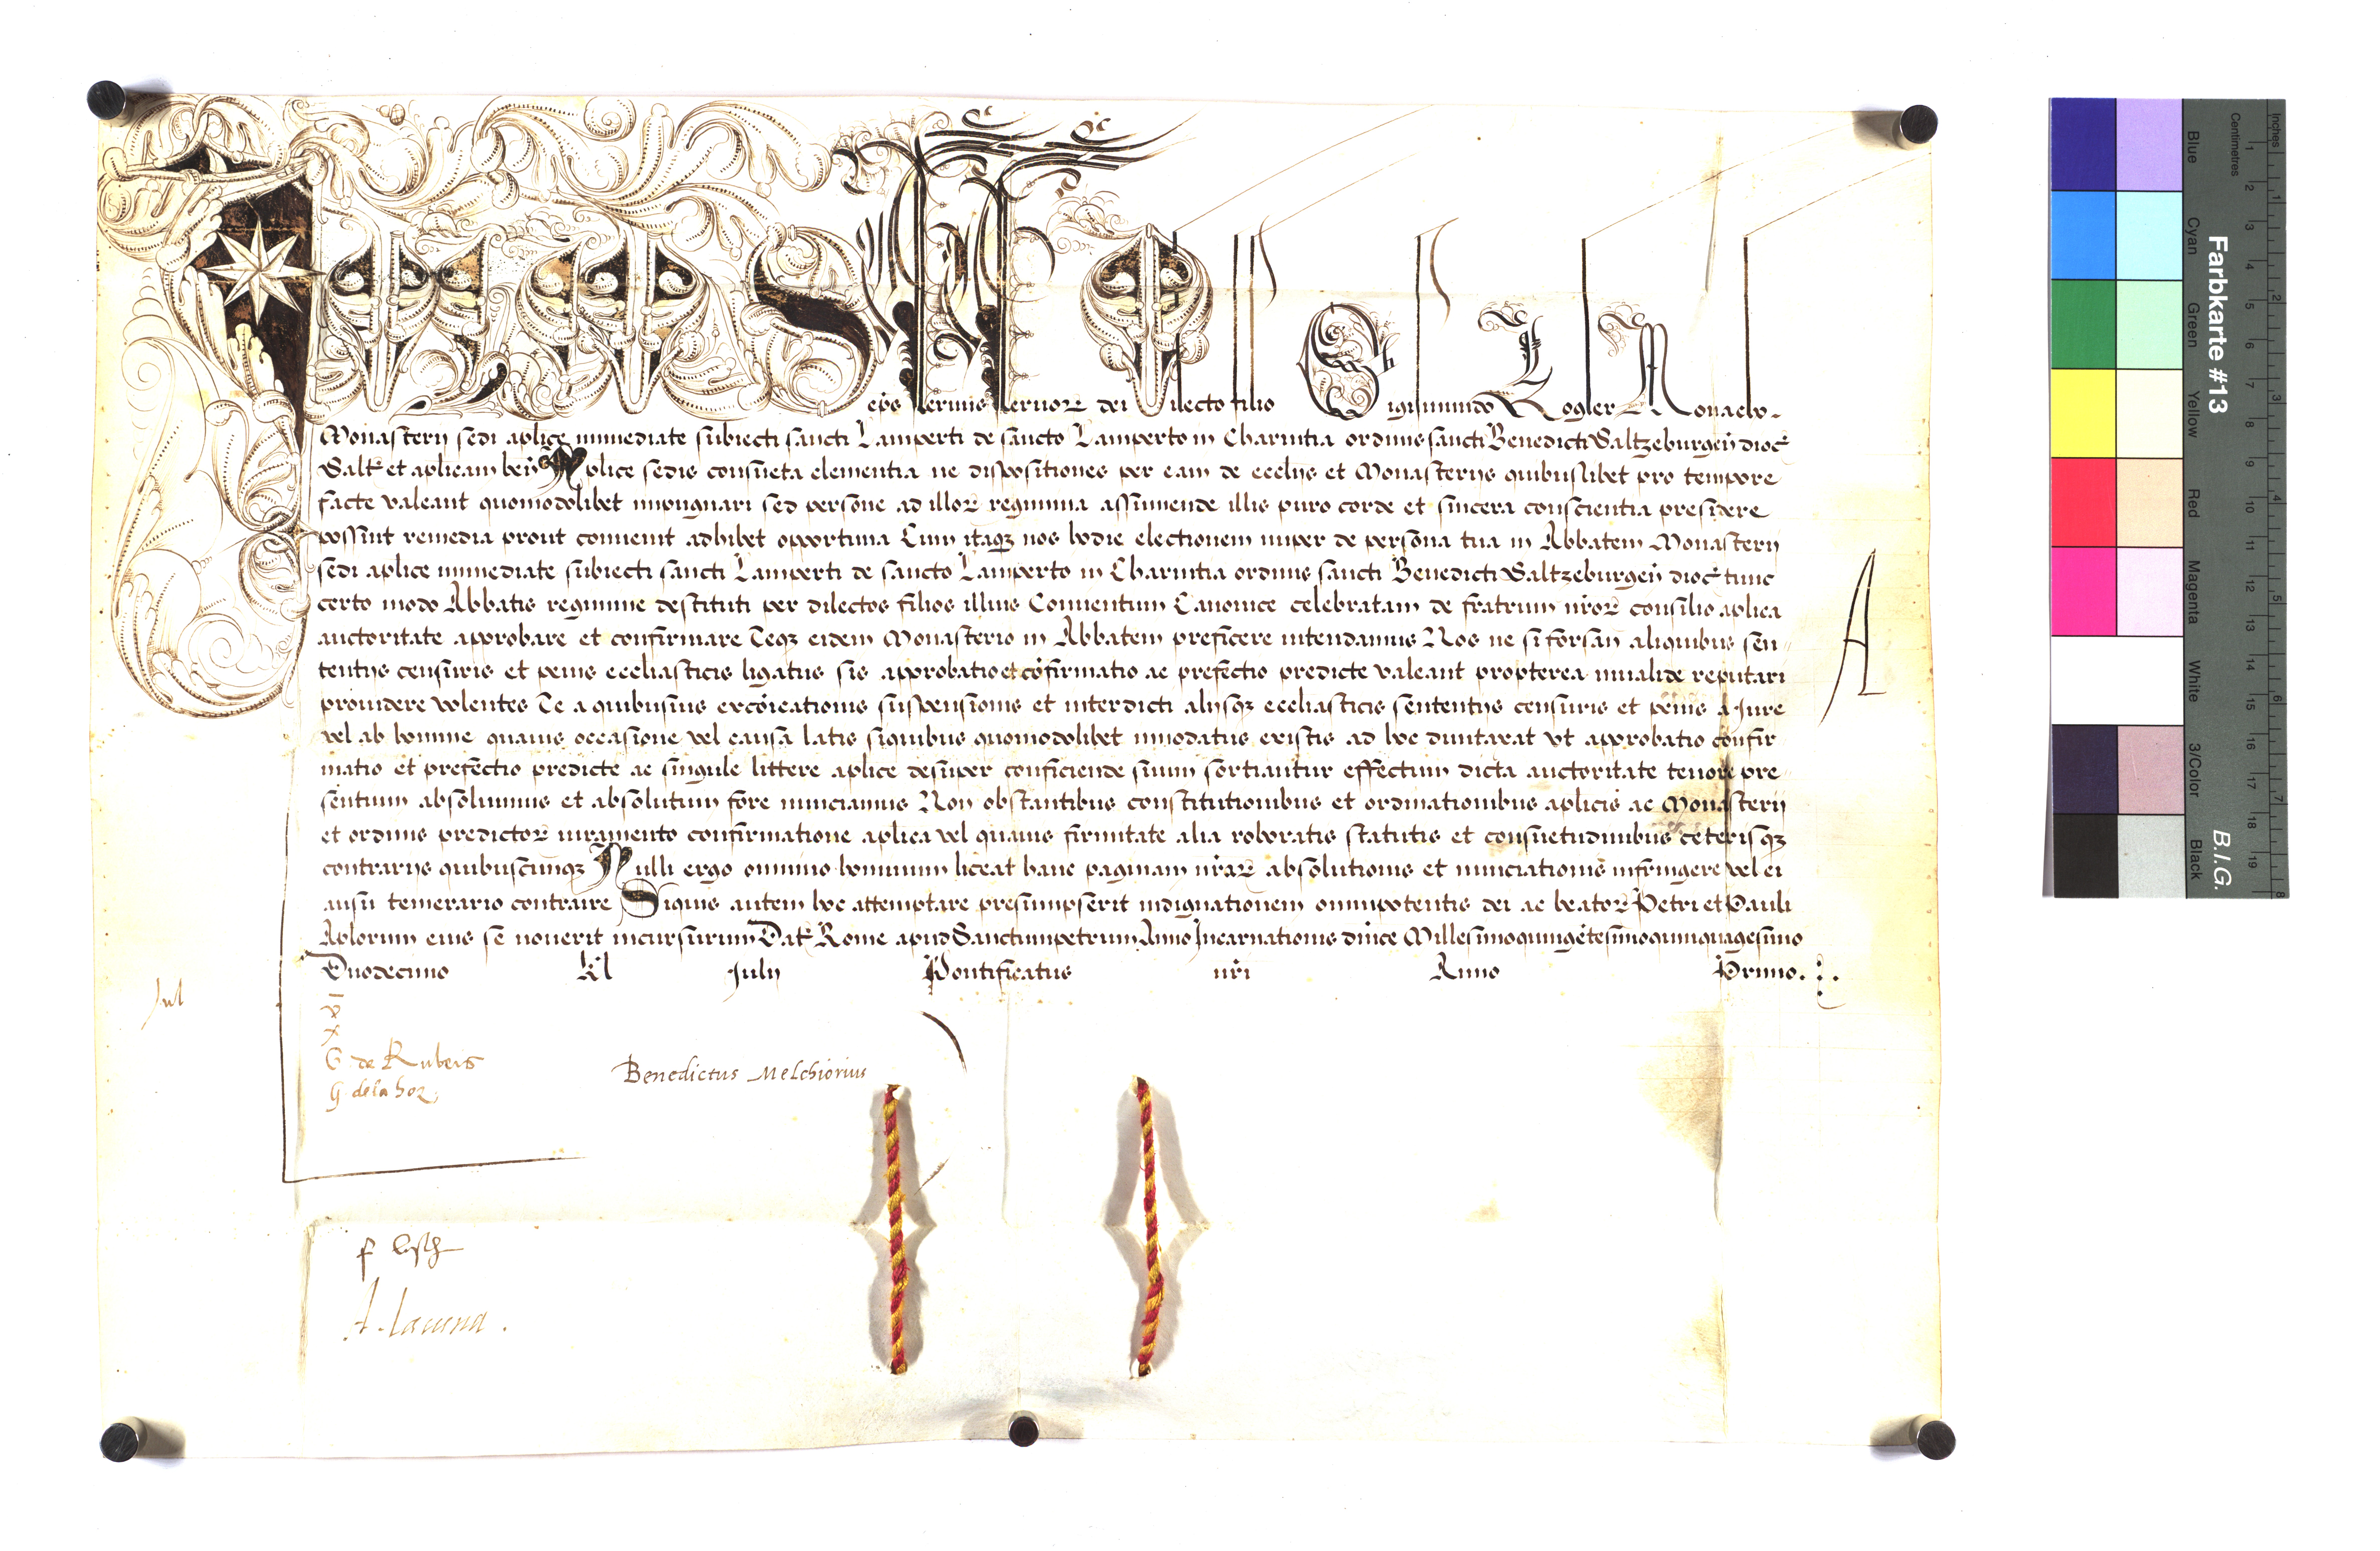 IULIUS eps servus servor dei Dilecto filio Sigismundo Kogler Monacho
Monasterii sedi aplice immediate subiecti sancti Lamperti de sancto Lamperto in Charintia ordinis sancti Benedicti Saltzeburgen dioc
Salt et aplicam ben Aplice sedis consueta clementia ne dispositiones per eam de ecclijs et Monasterijs quibuslibet pro tempore
facte valeant quomodolibet impugnari sed persone ad illor regimina assumende illis puro corde et sincera conscientia presidere
possint remedia prout convenit adhibet opportuna Cum itaq nos hodie electionem nuper de persona tua in Abbatem Monasterij
sedi aplice immediate subiecti sancti Lamperti de sancto Lamperto in Charintia ordinis sancti Benedicti Saltzeburgen dioc tunc
certo modo Abbatis regimine destituti per dilectos filios illius Conventum Canonice celebratam de fratrum nror consilio aplica
auctoritate approbare et confirmare Teq eidem Monasterio in Abbatem preficere intendamus Nos ne si forsan aliquibus sen
tentijs censuris et penis eccliasticis ligatus sis approbatio et cofirmatio ac prefectio predicte valeant propterea invalide reputari
providere volentes Te a quibusvis excoicationis suspensionis et interdicti alijsq eccliasticis sententijs censuris et penis a Jure
vel ab homine quavis occasione vel causa latis siquibus quomodolibet innodatus existis ad hoc duntaxat vt approbatio confir
matio et prefectio predicte ac singule littere aplice desuper conficiende suum sortiantur effectum dicta auctoritate tenore pre
sentium absolvimus et absolutum fore nunciamus Non obstantibus constitutionibus et ordinationibus aplicis ac Monasterij
et ordinis predictor iuramento confirmatione aplica vel quavis firmitate alia roboratis statutis et consuetudinibus ceterisq
contrarijs quibuscunq Nulli ergo omnino hominum liceat hanc paginam nrar absolutionis et nunciationis infringere vel ei
ausu temerario contraire Siquis autem hoc attemptare presumpserit indignationem omnipotentis dei ac beator Petri et Pauli
Aplorum eius se noverit incursurum Dat Rome apud Sanctumpetrum Anno Incarnationis dnice Millesimoquingetesimoquinquagesimo
Duodecimo Kl Julij Pontificatus nri Anno Primo.
A
Jul
G de Rubeis
G. dela hoz
Benedictus Melchiorius
A. lacuna.
Inches
Centimetres
Farbkarte #13
B.I.G.
Blue
Cyan
Green
Yellow
Red
Magenta
White
3/Color
Black
1 2 3 4 5 6 7 8 9 10 11 12 13 14 15 16 17 18 19
1 2 3 4 5 6 7 8